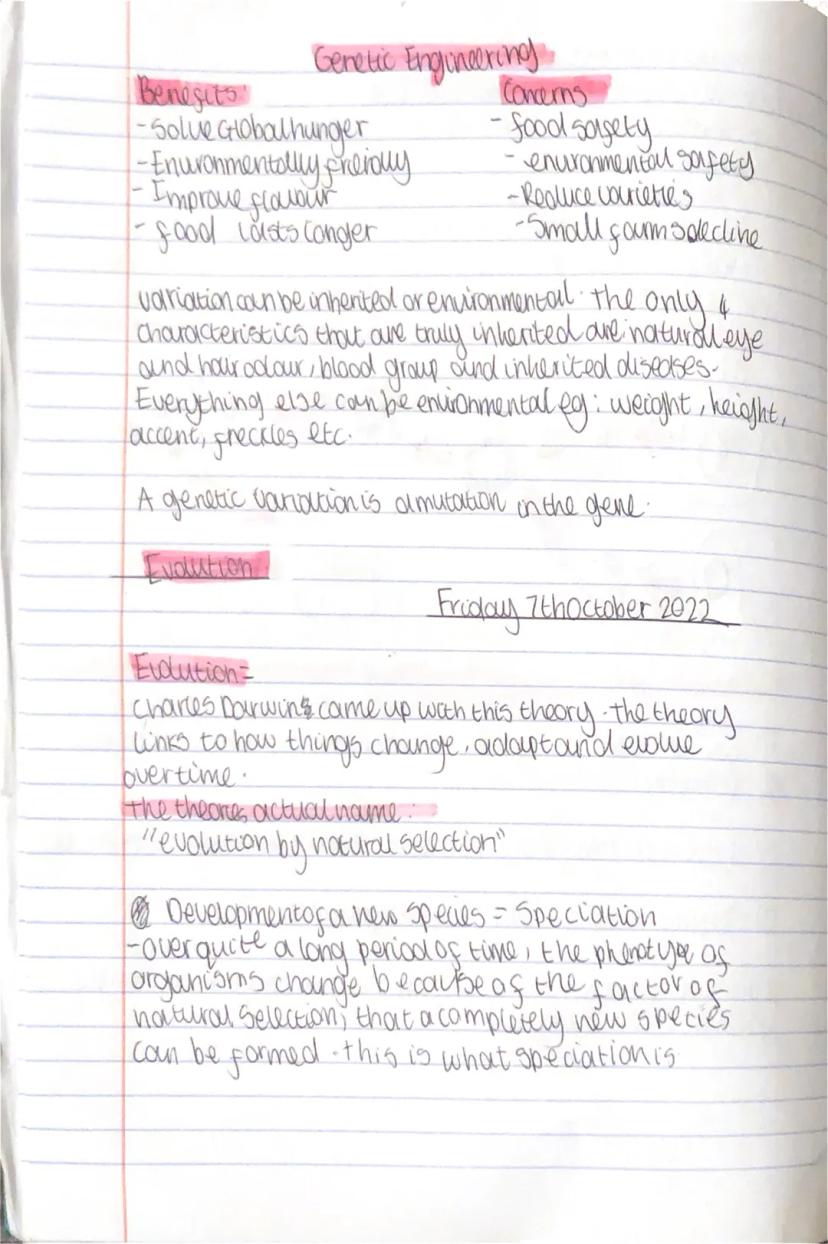 Genetic Engineering
Benefits: Concerns
- Solve Global hunger - food safety
- Environmentally friendly - environmental safety
- Improve flavour - Reduce varieties
- food lasts longer - Small farms decline
variation can be inherited or environmental. The only 4
characteristics that are truly inherited are: natural eye
and hair colour, blood group and inherited diseases.
Everything else can be environmental eg: weight, height,
accent, freckles etc.
A genetic variation is a mutation in the gene.
Evolution
Friday 7th October 2022
Evolution =
Charles Darwin came up with this theory. The theory
links to how things change, adapt and evolve
overtime.
The theories actual name:
"evolution by natural selection"
Development of a new species = Speciation
- over quite a long period of time, the phenotype of
organisms change because of the factor of
natural selection; that a completely new species
can be formed. this is what speciation is